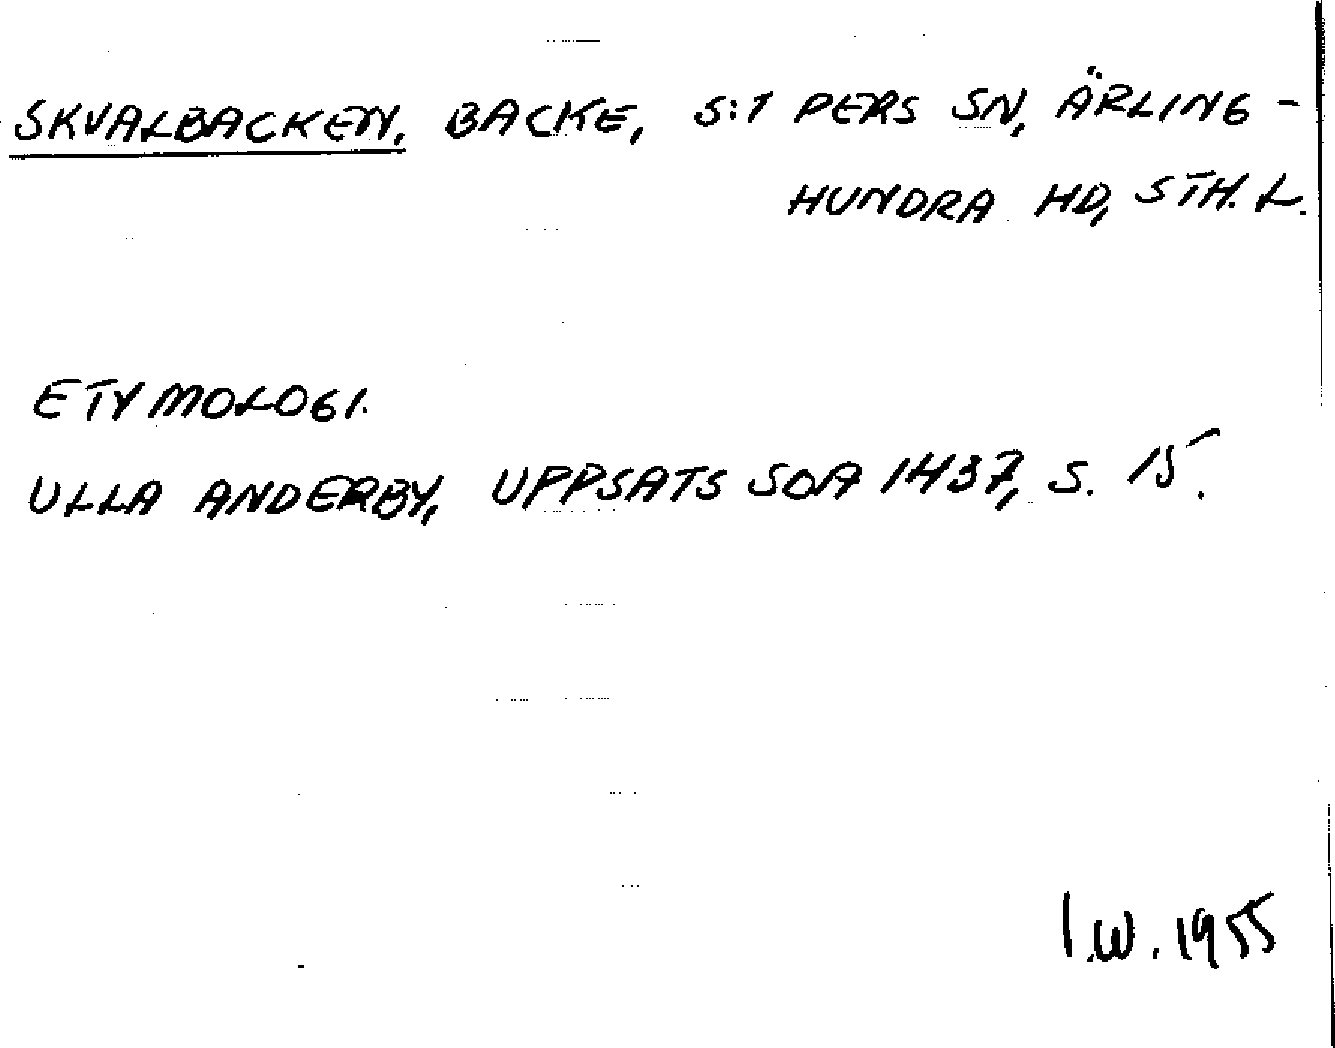 SKVALBACKEN, BACKE, S:T PERS SN, ÄRLING-
HUNDRA HD, STH. L.
ETYMOLOGI.
ULLA ANDERBY, UPPSATS SOA 1437, S. 15.
I.W. 1955